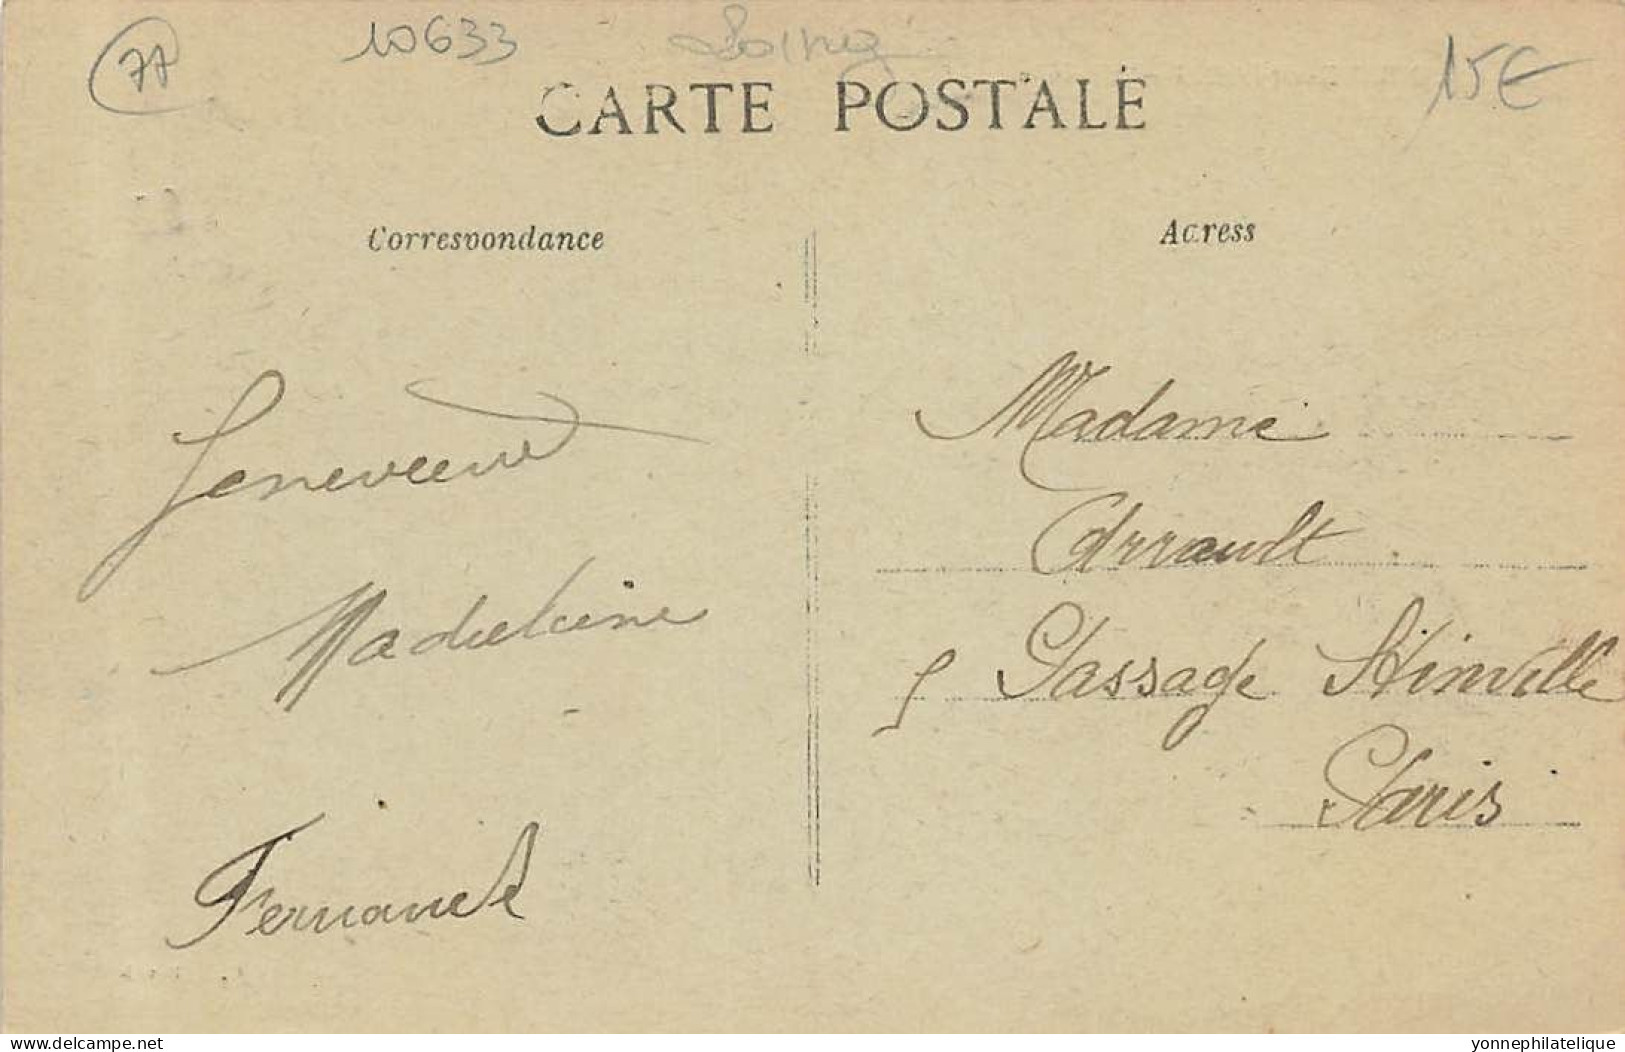 77 10633 15€
CARTE POSTALE
Correspondance
Adress
Genevieve
Madeleine
Fernand
Madame
Arrault
5 Passage Stinville
Paris
delcampe.net
yonnephilatelique